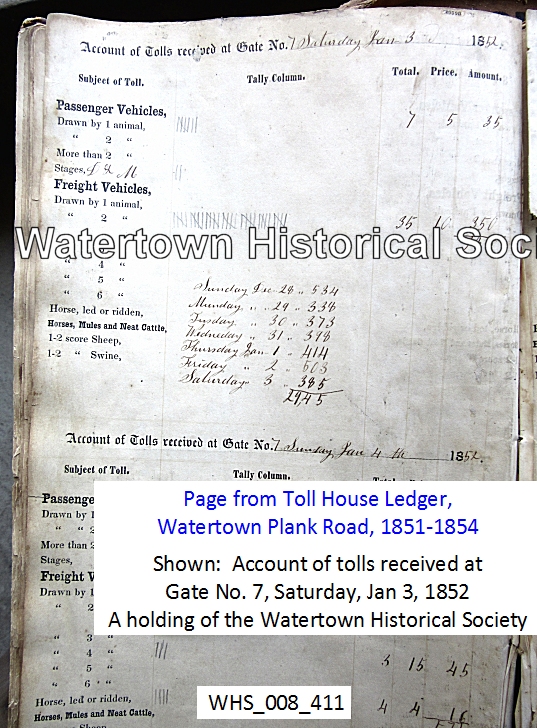 Account of Tolls received at Gate No. 7 Saturday Jan 3 1852.
Subject of Toll. Tally Column. Total. Price. Amount.
Passenger Vehicles,
Drawn by 1 animal, 7 5 35
“ 2 “
More than 2 “
Stages, L & M
Freight Vehicles,
Drawn by 1 animal,
“ 2 “ 35 10 350
Watertown Historical Soci
“ 4 “
“ 5 “
“ 6 “
Horse, led or ridden,
Horses, Mules and Neat Cattle,
1-2 score Sheep,
1-2 “ Swine,
Sunday Dec 28 „ 534
Munday „ 29 „ 338
Tusday „ 30 „ 373
Wednesday „ 31 „ 398
Thursday Jan 1 „ 414
Friday „ 2 „ 503
Saturday 3 „ 385
2945
Account of Tolls received at Gate No. 7 Sunday Jan 4 th 1852.
Subject of Toll. Tally Column.
Passenger
Drawn by 1
“ “ 2
More than 2
Stages,
Freight V
Drawn by 1
“ 2
“ 3 “
“ 4 “
“ 5 “ 3 15 45
“ 6 “
Horse, led or ridden, 4 4 16
Horses, Mules and Neat Cattle,
1-2 score Sheep,
Page from Toll House Ledger,
Watertown Plank Road, 1851-1854
Shown: Account of tolls received at
Gate No. 7, Saturday, Jan 3, 1852
A holding of the Watertown Historical Society
WHS_008_411